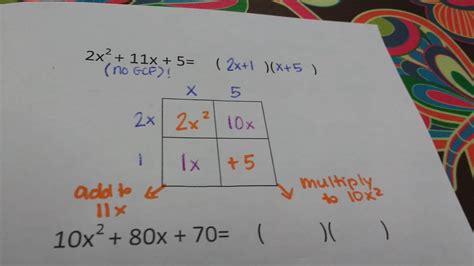 2x² + 11x + 5= ( 2x+1 )(x+5 )
(no GCF)!
x 5
2x 2x² 10x
1 1x +5
add to
11x
multiply
to 10x²
10x² + 80x + 70= ( )( )